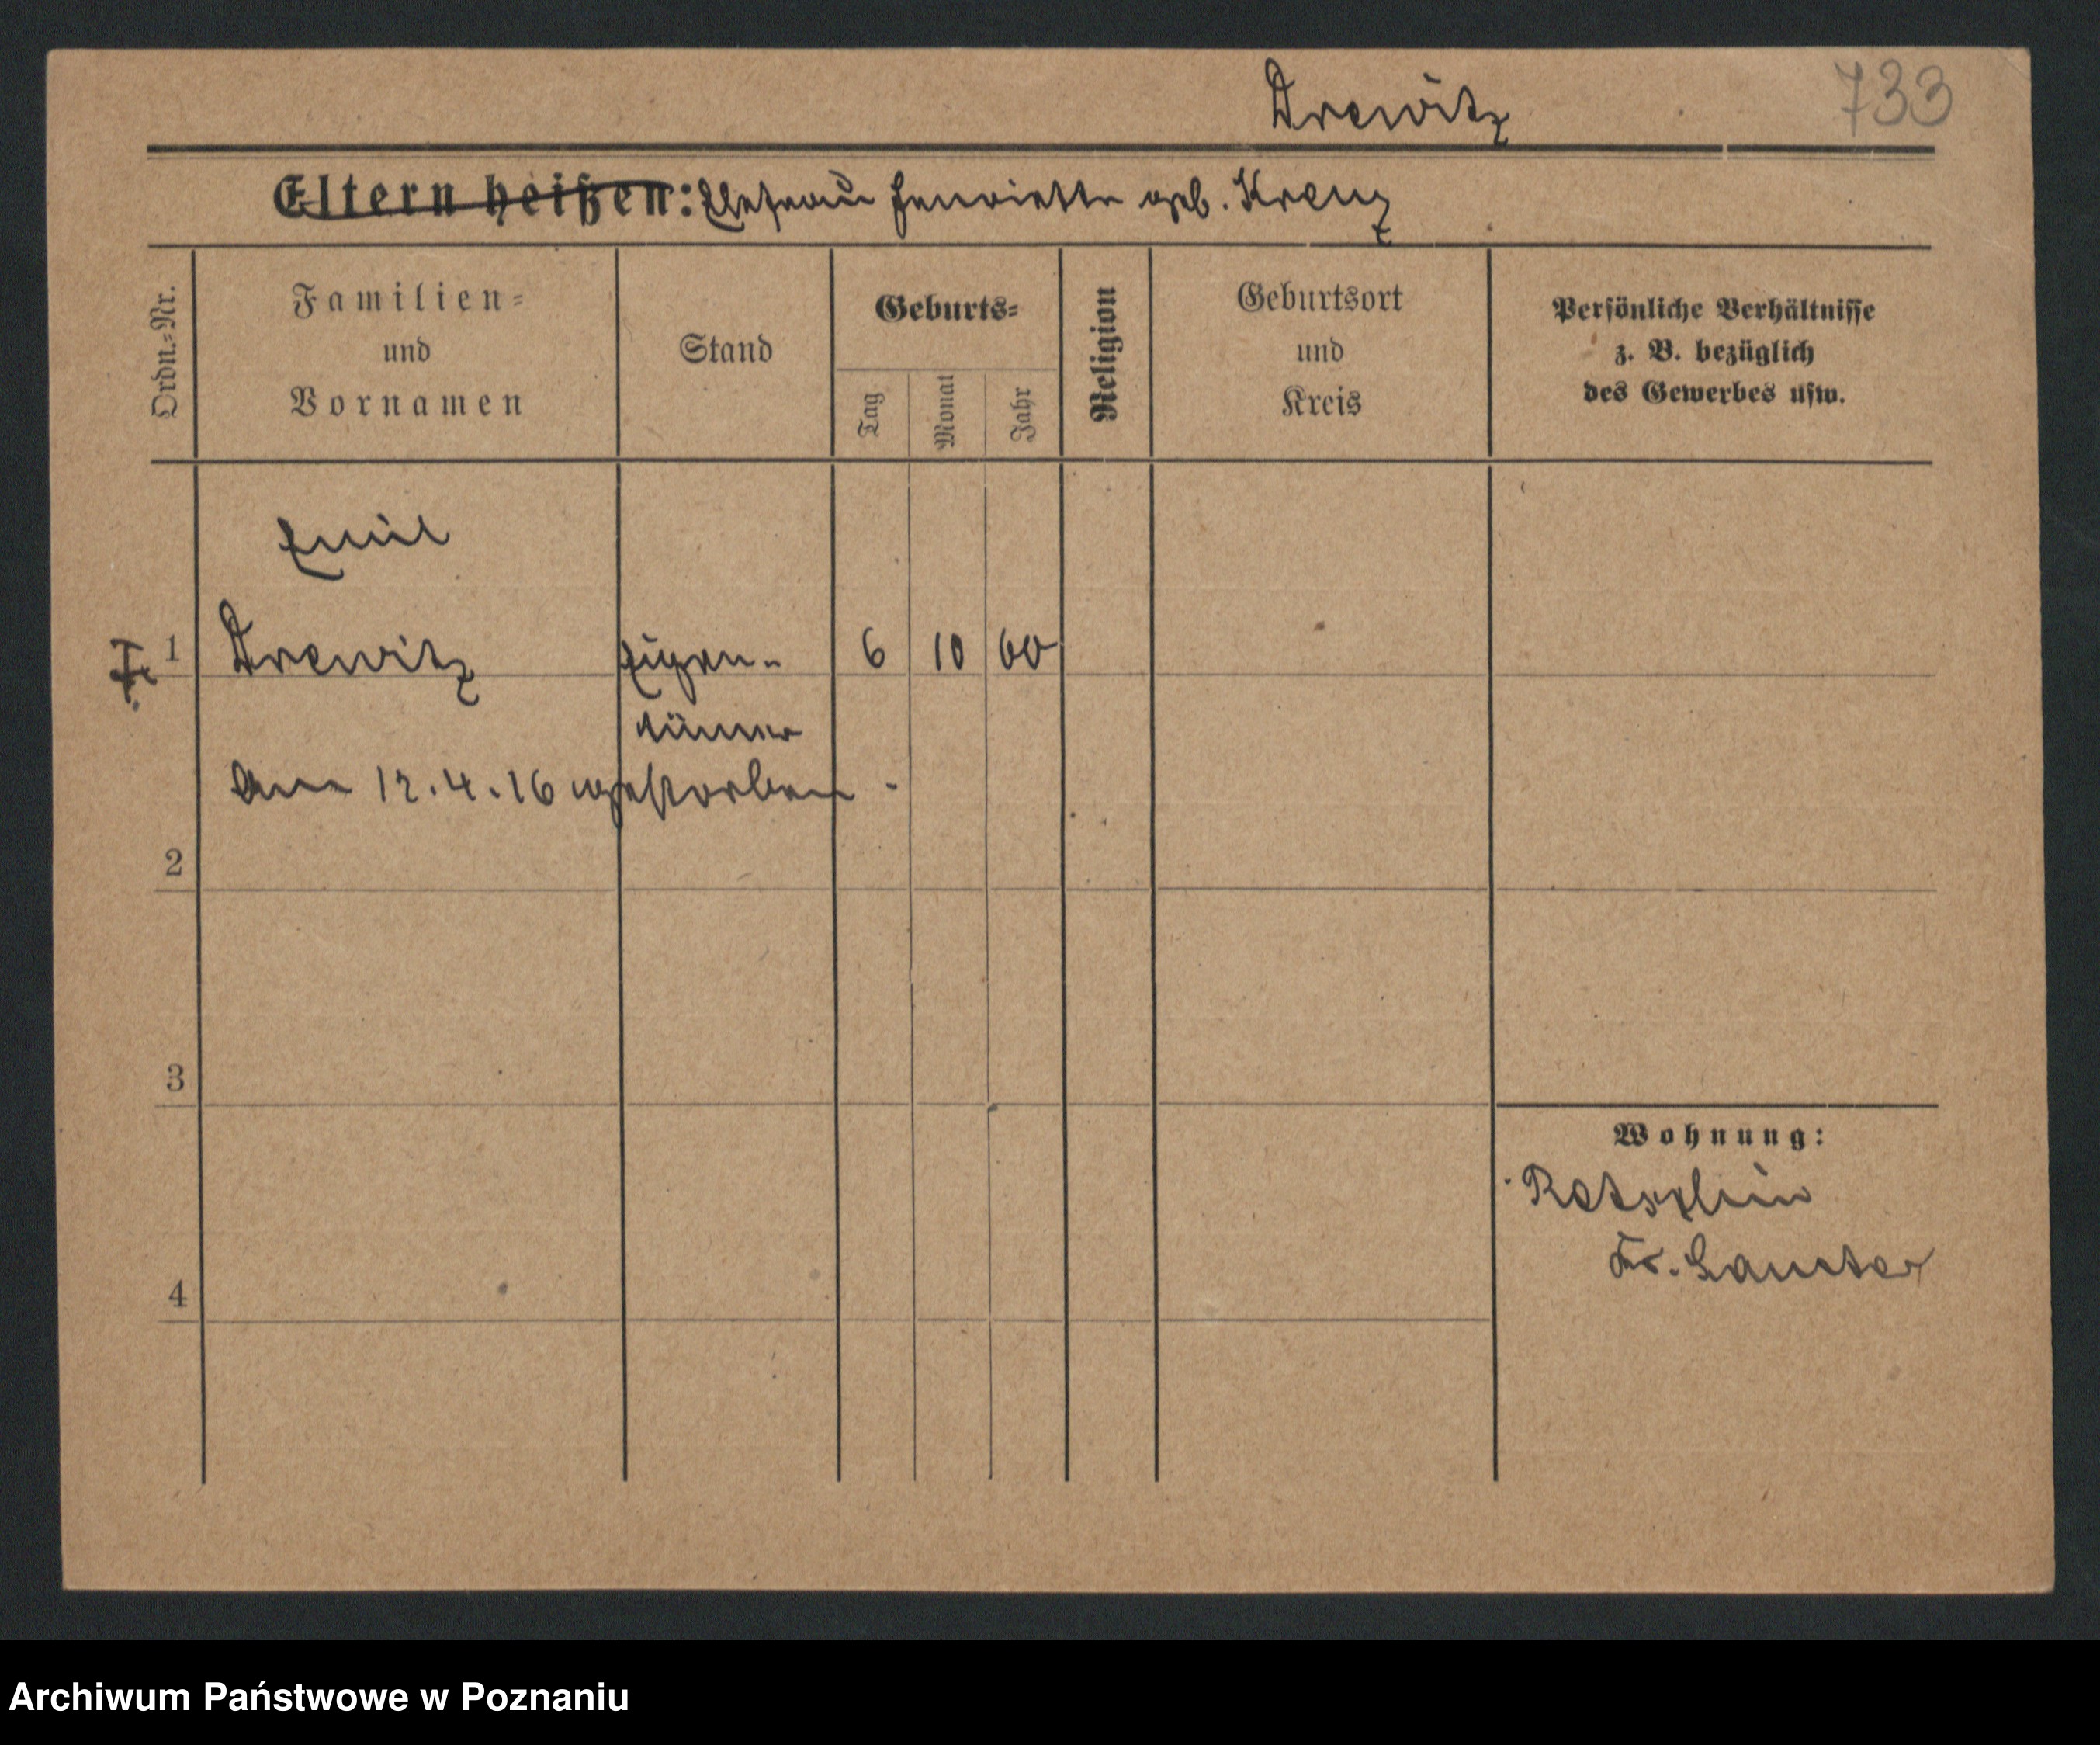 Drewitz 733
Eltern heißen: Ehefrau Henriette geb. Krenz
Ordn.=Nr.
Familien=
und
Vornamen
Stand
Geburts=
Tag
Monat
Jahr
Religion
Geburtsort
und
Kreis
Persönliche Verhältnisse
z. B. bezüglich
des Gewerbes usw.
Emil
1 Drewitz Eigen- 6 10 60
tümer
am 12.4.16 gestorben.
2
3
4
Wohnung:
Kr.
Archiwum Państwowe w Poznaniu